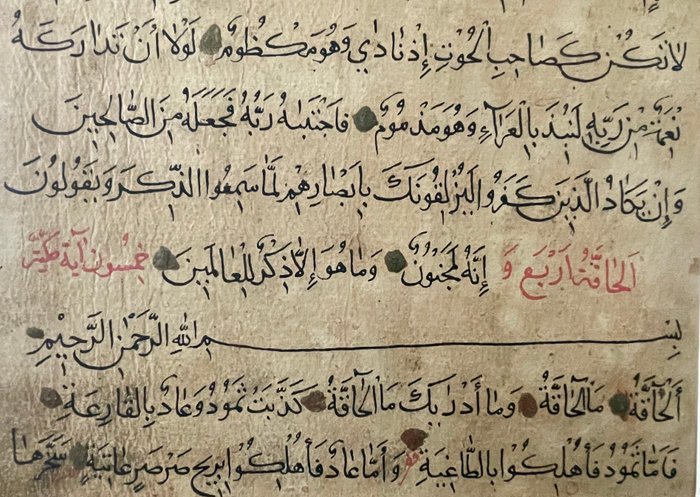 لَا تَكُنْ كَصَاحِبِ الْحُوتِ إِذْ نَادٰي وَهُوَ مَكْظُومٌ لَوْلَا أَنْ تَدَارَكَهُ
نِعْمَةٌ مِنْ رَبِّهِ لَنُبِذَ بِالْعَرَآءِ وَهُوَ مَذْمُومٌ فَاجْتَبٰىهُ رَبُّهُ فَجَعَلَهُ مِنَ الصَّالِحِينَ
وَإِنْ يَكَادُ الَّذِينَ كَفَرُوا لَيُزْلِقُونَكَ بِأَبْصَارِهِمْ لَمَّا سَمِعُوا الذِّكْرَ وَيَقُولُونَ
الْحَاقَّةُ اَرْبَع وَ إِنَّهُ لَمَجْنُونٌ وَمَا هُوَ إِلَّا ذِكْرٌ لِلْعَالَمِينَ خمسون آية
بِسْمِ اللهِ الرَّحْمٰنِ الرَّحِيْمِ
اَلْحَاقَّةُ مَا الْحَاقَّةُ وَمَا أَدْرٰىكَ مَا الْحَاقَّةُ كَذَّبَتْ ثَمُودُ وَعَادٌ بِالْقَارِعَةِ
فَأَمَّا ثَمُودُ فَأُهْلِكُوا بِالطَّاغِيَةِ وَأَمَّا عَادٌ فَأُهْلِكُوا بِرِيحٍ صَرْصَرٍ عَاتِيَةٍ سَخَّرَهَا